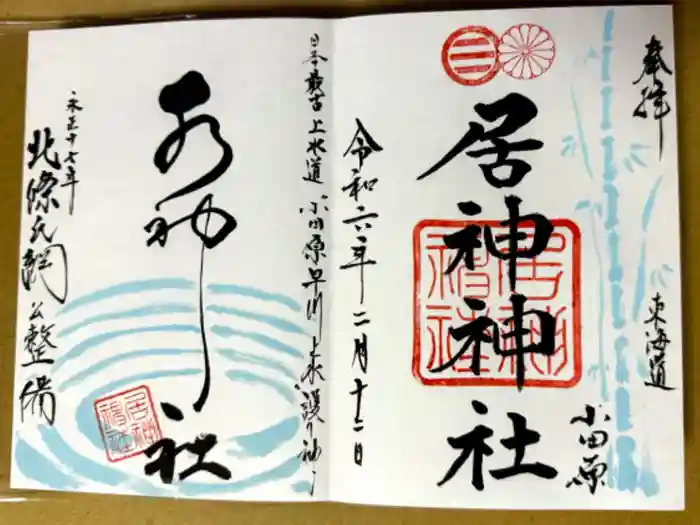 奉拝
東海道
小田原
居神神社
居神
神社
令和六年二月十二日
日本最古上水道 小田原早川上水護り神
水神社
居神
神社
永正十七年
北條氏綱公整備